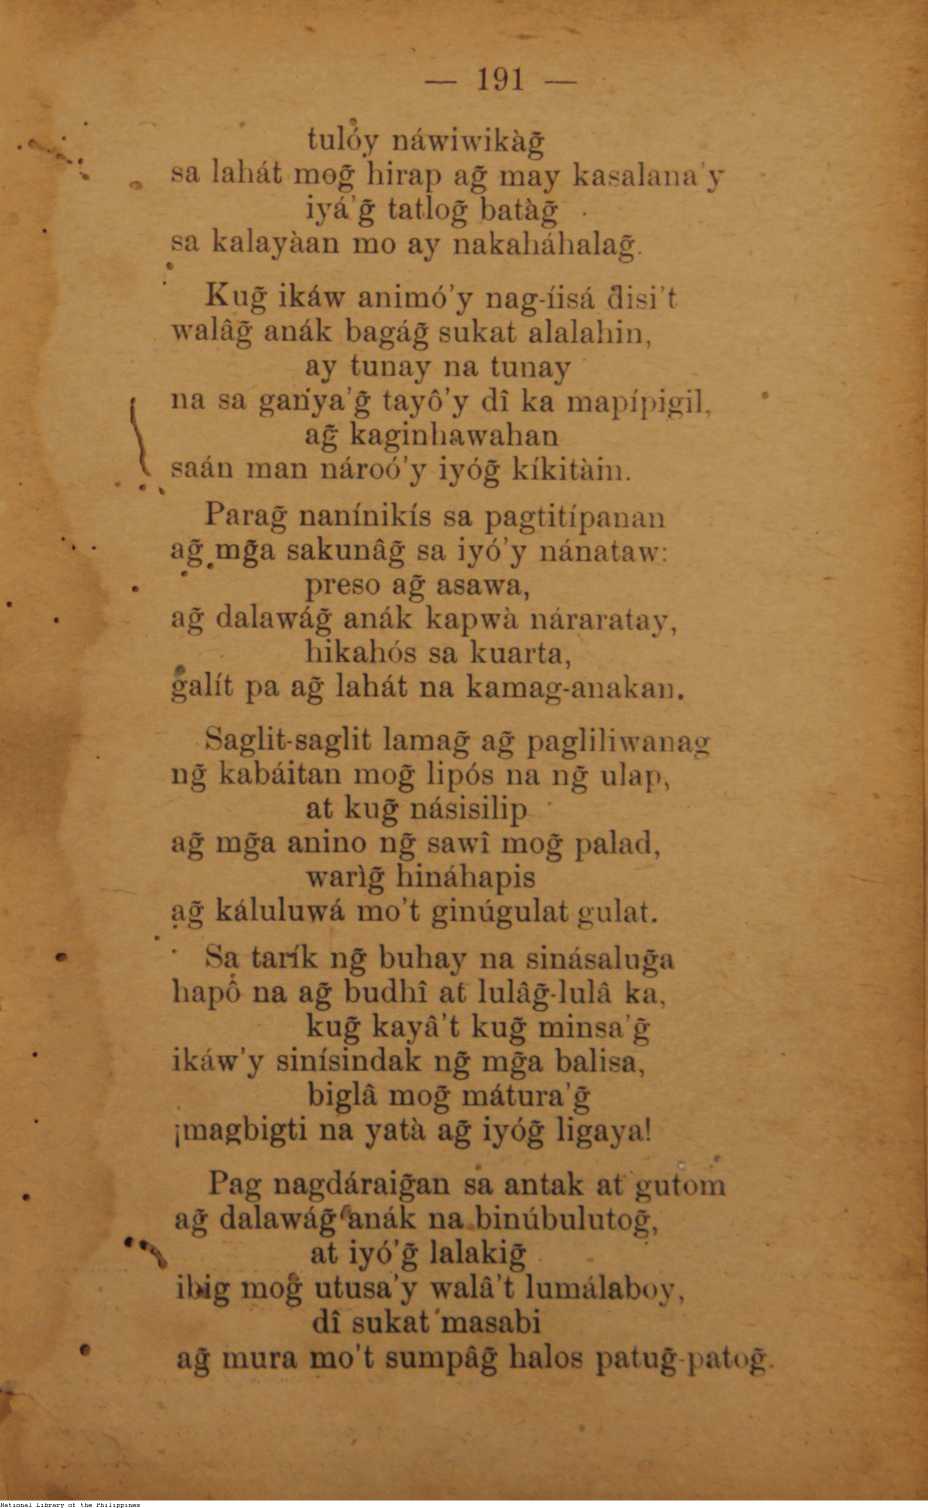 — 191 —
tulóy náwiwikàg̃
sa lahát mog̃ hirap ag̃ may kasalana'y
iyá'g̃ tatlog̃ batàg̃
sa kalayàan mo ay nakaháhalag̃.
Kug̃ ikáw animó'y nag-íisá disi't
walâg̃ anák bagág̃ sukat alalahin,
ay tunay na tunay
na sa gariya'g̃ tayô'y dî ka mapípigil,
ag̃ kaginhawahan
saán man nároó'y iyóg̃ kíkitàin.
Parag̃ nanínikís sa pagtitípanan
ag̃ mg̃a sakunâg̃ sa iyó'y nánataw:
preso ag̃ asawa,
ag̃ dalawág̃ anák kapwà náraratay,
hikahós sa kuarta,
g̃alít pa ag̃ lahát na kamag-anakan.
Saglit-saglit lamag̃ ag̃ pagliliwanag
ng̃ kabáitan mog̃ lipós na ng̃ ulap,
at kug̃ násisilip
ag̃ mg̃a anino ng̃ sawî mog̃ palad,
warìg̃ hináhapis
ag̃ káluluwá mo't ginúgulat gulat.
Sa tarík ng̃ buhay na sinásalug̃a
hapô na ag̃ budhî at lulâg̃-lulâ ka,
kug̃ kayâ't kug̃ minsa'g̃
ikáw'y sinísindak ng̃ mg̃a balisa,
biglâ mog̃ mátura'g̃
¡magbigti na yatà ag̃ iyóg̃ ligaya!
Pag nagdáraig̃an sa antak at gutom
ag̃ dalawág̃ anák na binúbulutog̃,
at iyó'g̃ lalakig̃
ibig mog̃ utusa'y walâ't lumálaboy,
dî sukat masabi
ag̃ mura mo't sumpâg̃ halos patug̃-patog̃.
National Library of the Philippines